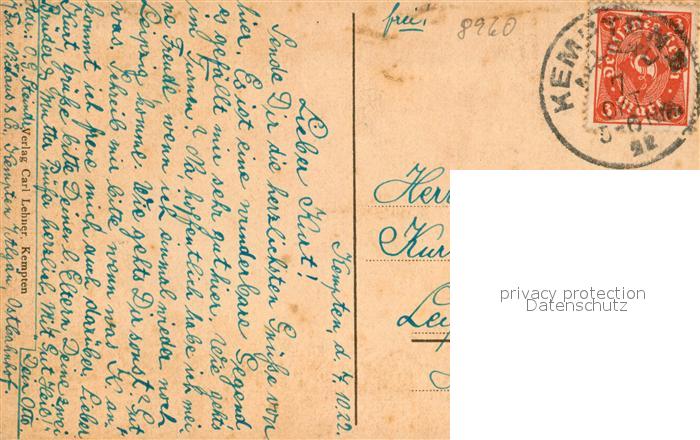 frei!
8960
KEMPTEN
Deutsches Reich
6
Mark
5-6 NM
22
Kempten, d. 7.10.22.
Lieber Kurt!
Sende Dir die herzlichsten Grüße von
hier. Es ist eine wunderbare Gegend,
es gefällt mir sehr gut hier. Wie gehts
im Turnen? Na, hoffentlich habe ich mei-
ne Freude wenn ich einmal wieder nach
Leipzig komme. Wie gehts Dir sonst? Gut
was. Schreib mir bitte wenn was K. an-
kommt ich freue mich auch darüber. Lieber
Kurt grüße bitte Deine l. Eltern Deine zwei
Brüder u. Mutter herzlich. Mit Gut Heil!
Dein Otto
Kempten Allgäu,
Verlag Carl Lehner, Kempten
Herr
Kur
Lei
privacy protection
Datenschutz